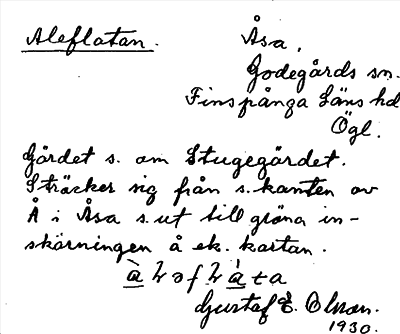 Aleflatan.
Åsa,
Godegårds sn.
Finspånga läns hd
Ögl.
Gärdet s. om Stugegärdet.
Sträcker sig från s. kanten av
Å i Åsa s. ut till gröna in-
skärningen å ek. kartan.
Gustaf E. Olsson.
1930.